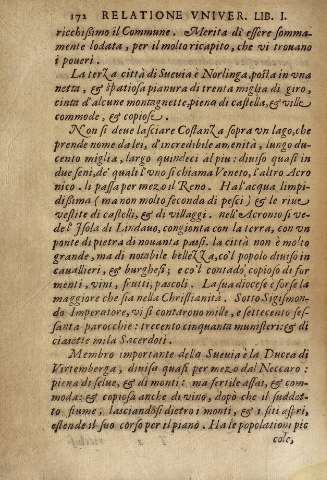 172 RELATIONE VNIVER. LIB. I.
ricchissimo il Commune. Merita di essere somma-
mente lodata, per il molto ricapito, che vi trouano
i poueri.
La terza città di Sueuia è Norlinga, posta in vna
netta, & spatiosa pianura di trenta miglia di giro,
cinta d'alcune montagnette, piena di castella, & ville
commode, & copiose.
Non si deue lasciare Costanza sopra vn lago, che
prende nome da lei, d'incredibile amenità, lungo du-
cento miglia, largo quindeci al piu: diuiso quasi in
due seni, de' quali l'vno si chiama Veneto, l'altro Acro
nico. li passa per mezo il Reno. Ha l'acqua limpi-
dissima (ma non molto feconda di pesci) & le riue
vestite di castelli, & di villaggi. nell'Acronio si ve-
de l'Isola di Lindauo, congionta con la terra, con vn
ponte di pietra di nouanta passi. la città non è molto
grande, ma di notabile bellezza, co'l popolo diuiso in
cauallieri, & burghesi; e co'l contado copioso di for
menti, vini, frutti, pascoli. La sua diocese è forse la
maggiore che sia nella Christianità. Sotto Sigismon-
do Imperatore, vi si contarono mille, e settecento ses-
santa parocchie: trecento cinquanta munisteri: & di
ciasette mila Sacerdoti.
Membro importante della Sueuia è la Ducea di
Virtemberga, diuisa quasi per mezo dal Neccaro:
piena di selue, & di monti: ma fertile assai, & com-
moda: & copiosa anche di vino, dopò che il suddet-
to fiume, lasciandosi dietro i monti, & i siti aspri,
estende il suo corso per il piano. Ha le popolationi pic
cole,